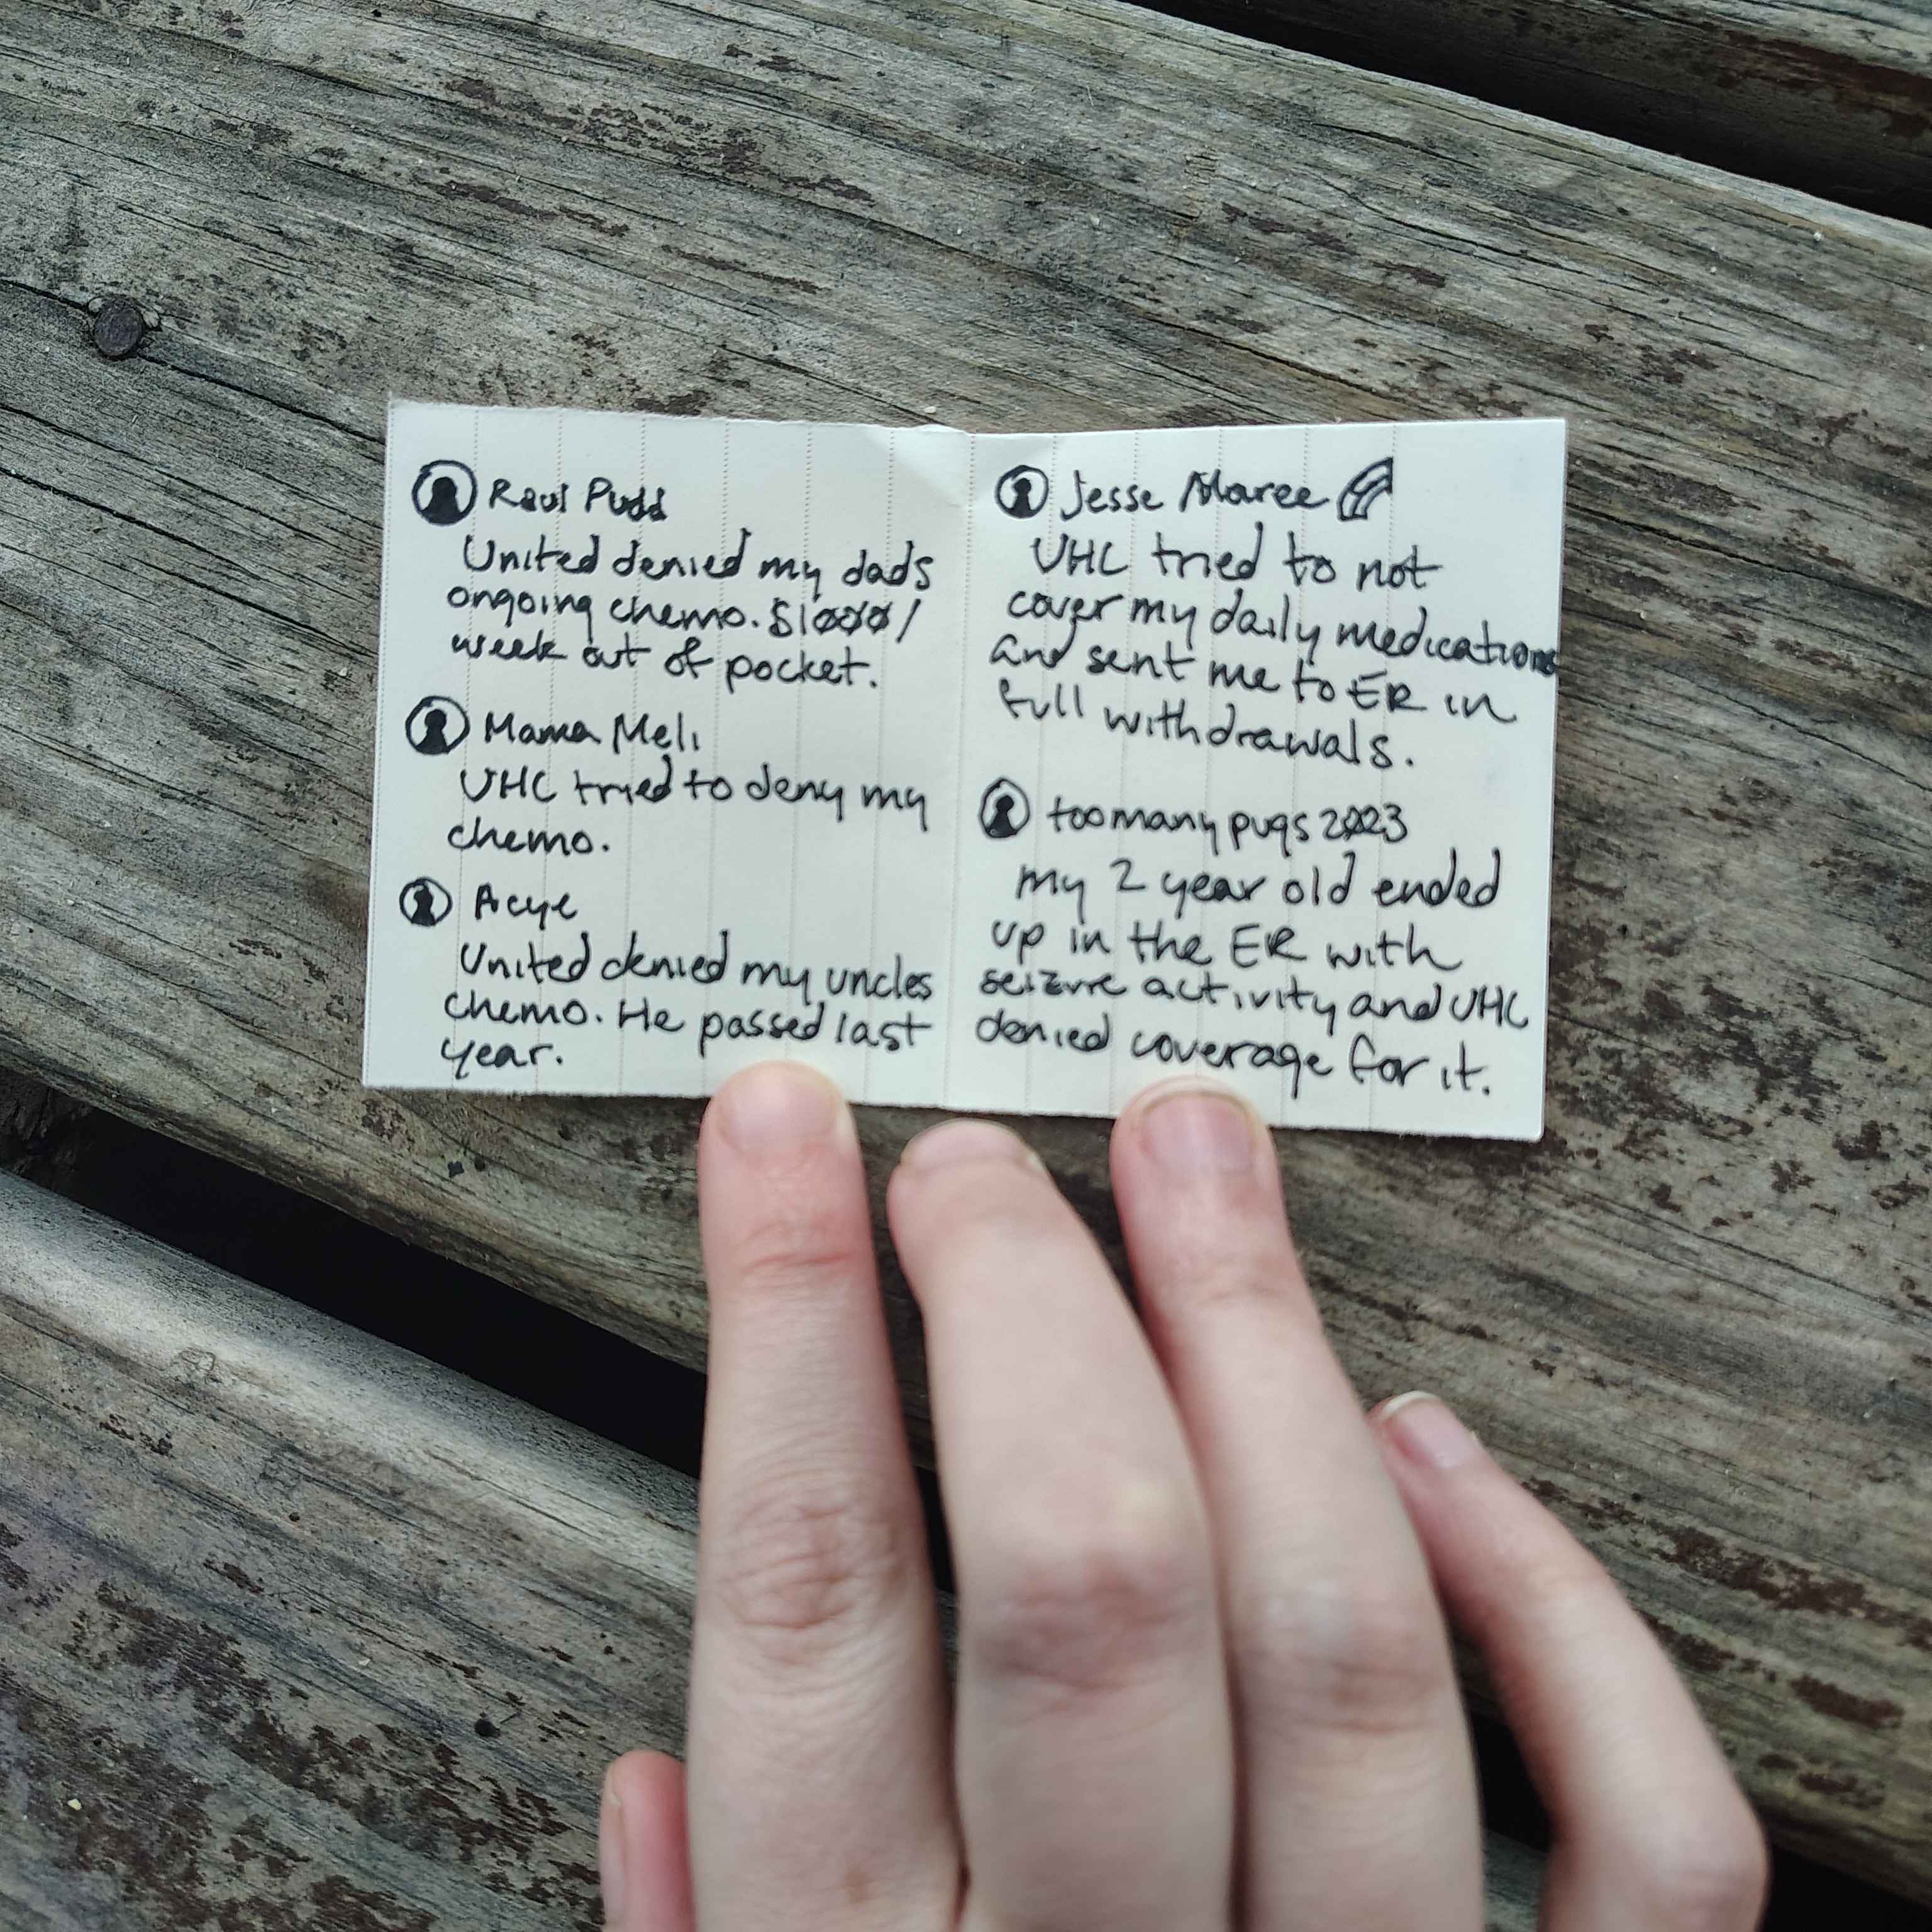 Raul Pudd
United denied my dads
ongoing chemo. $1000/
week out of pocket.
Mama Meli
UHC tried to deny my
chemo.
Acye
United denied my uncles
chemo. He passed last
year.
Jesse Maree
UHC tried to not
cover my daily medications
and sent me to ER in
full withdrawals.
toomanypugs2023
my 2 year old ended
up in the ER with
seizure activity and UHC
denied coverage for it.